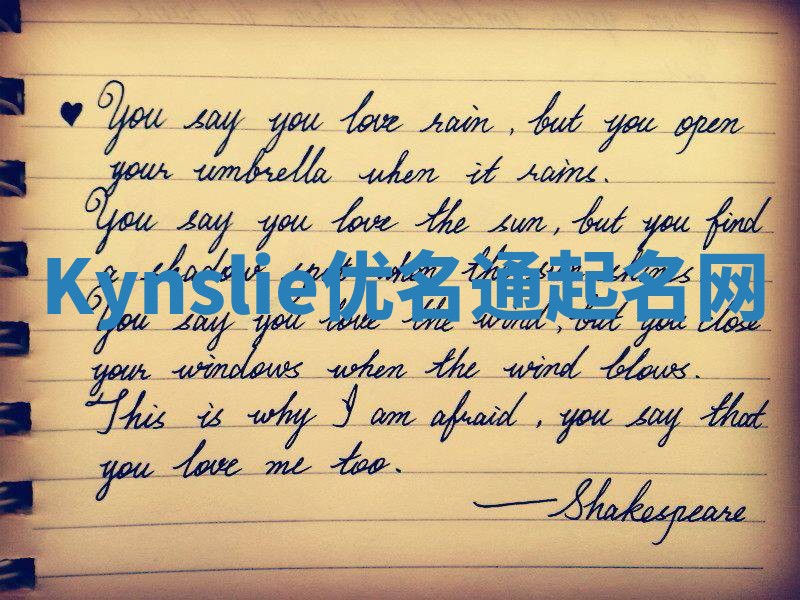 ♥ You say you love rain, but you open
your umbrella when it rains.
You say you love the sun, but you find
a shadow spot when the sun shines
Kynslie优名通起名网
You say you love the wind, but you close
your windows when the wind blows.
This is why I am afraid, you say that
you love me too.
—Shakespeare